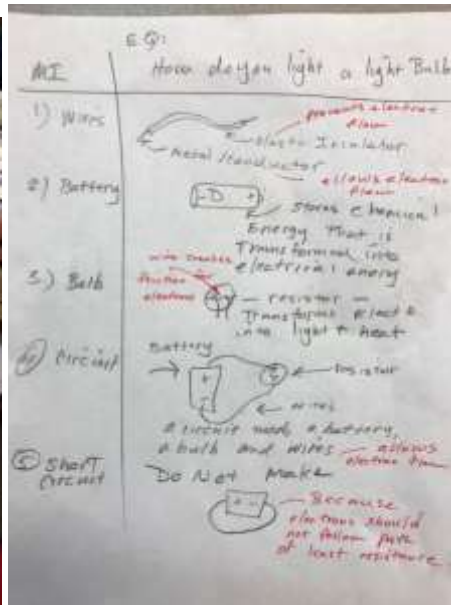 E.Q:
MI
How do you light a light Bulb
1) Wires
prevents electron
flow
Plastic Insulator
Metal / conductor
allows electron
flow
2) Battery
- D +
stores chemical
Energy that is
Transformed into
electrical energy
3) Bulb
wire creates
friction for
electrons
resistor –
Transforms elect
into light + heat
4) Circuit
Battery
+
-
resistor
wires
a circuit needs a battery,
a bulb and wires
allows
electron flow
5 Short
Circuit
Do Not Make
+ -
Because
electrons should
not follow path
of least resistance